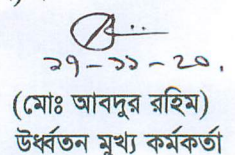 ২৭-১১-২০.
(মোঃ আবদুর রহিম)
উর্ধ্বতন মুখ্য কর্মকর্তা